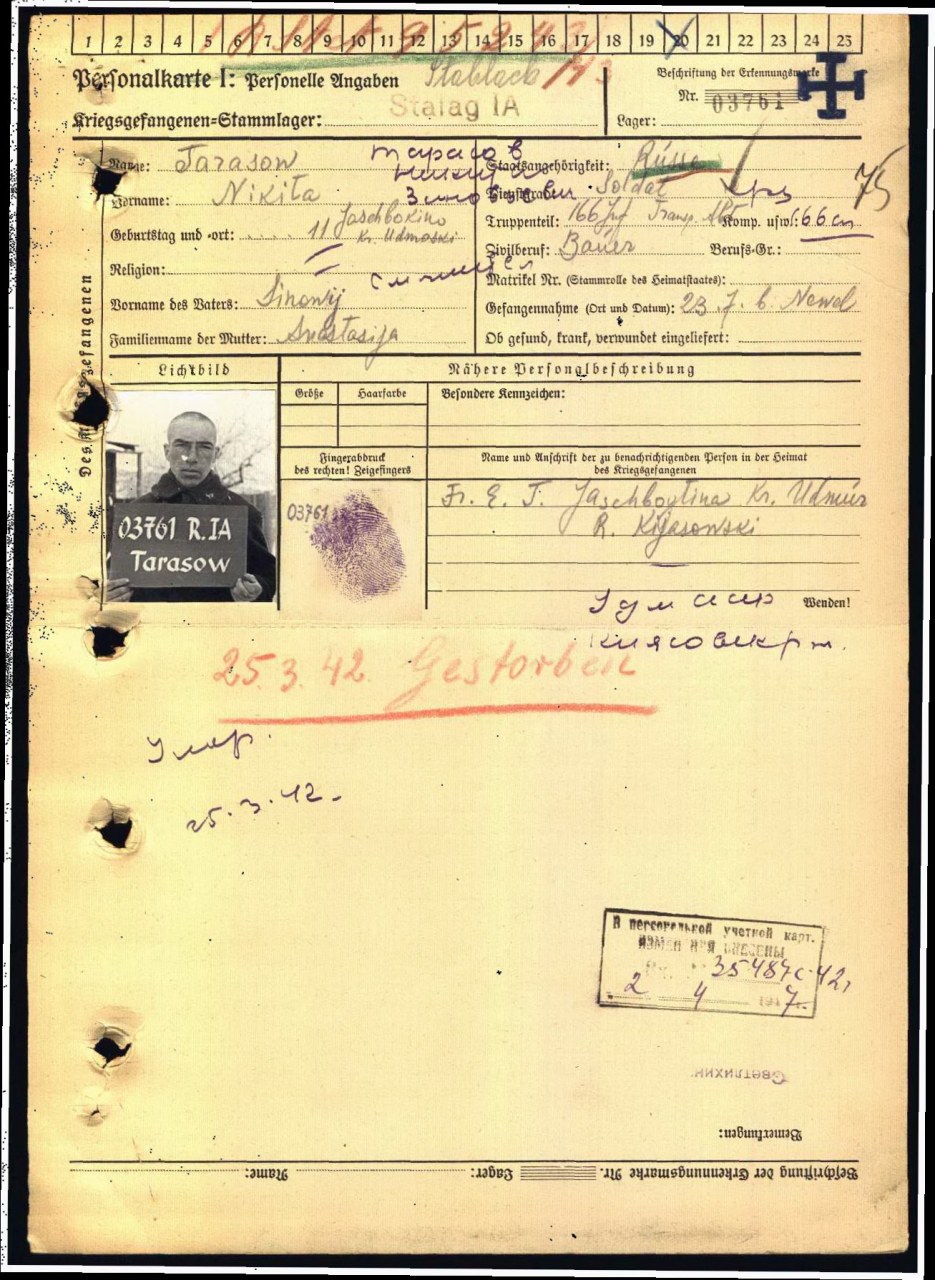 1 2 3 4 5 6 7 8 9 10 11 12 13 14 15 16 17 18 19 20 21 22 23 24 25
Personalkarte I: Personelle Angaben
Stablack
Beschriftung der Erkennungsmarke
Nr. 03761
Kriegsgefangenen=Stammlager: Stalag IA
Lager:
Des Kriegsgefangenen
Name: Tarasow
Тарасов
Никита
Зиновьевич
Vorname: Nikita
Geburtstag und =ort: 11 Jaschbokino
Kr. Udmoski
Religion:
Vorname des Vaters: Sinowij
Familienname der Mutter: Anastasija
Staatsangehörigkeit: Russe
75
Dienstgrad: Soldat
Truppenteil: 166 Inf Transp. Abt Komp. usw.: 66 сп
Zivilberuf: Bauer Berufs=Gr.:
Matrikel Nr. (Stammrolle des Heimatstaates):
Gefangennahme (Ort und Datum): 23.7. b. Newel
Ob gesund, krank, verwundet eingeliefert:
Lichtbild
03761 R.IA
Tarasow
Nähere Personalbeschreibung
Größe Haarfarbe Besondere Kennzeichen:
Fingerabdruck
des rechten! Zeigefingers
03761
Name und Anschrift der zu benachrichtigenden Person in der Heimat
des Kriegsgefangenen
Fr. E. T. Jaschboytina Kr. Udmur
R. Kijasowski
Wenden!
25.3.42. Gestorben
Умер.
25.3.42.
В персональной учетной карт.
изменения внесены
35487с-42г
2 4 1947.
Светлихин
Bemerkungen:
Beschriftung der Erkennungsmarke Nr. Lager: Name: